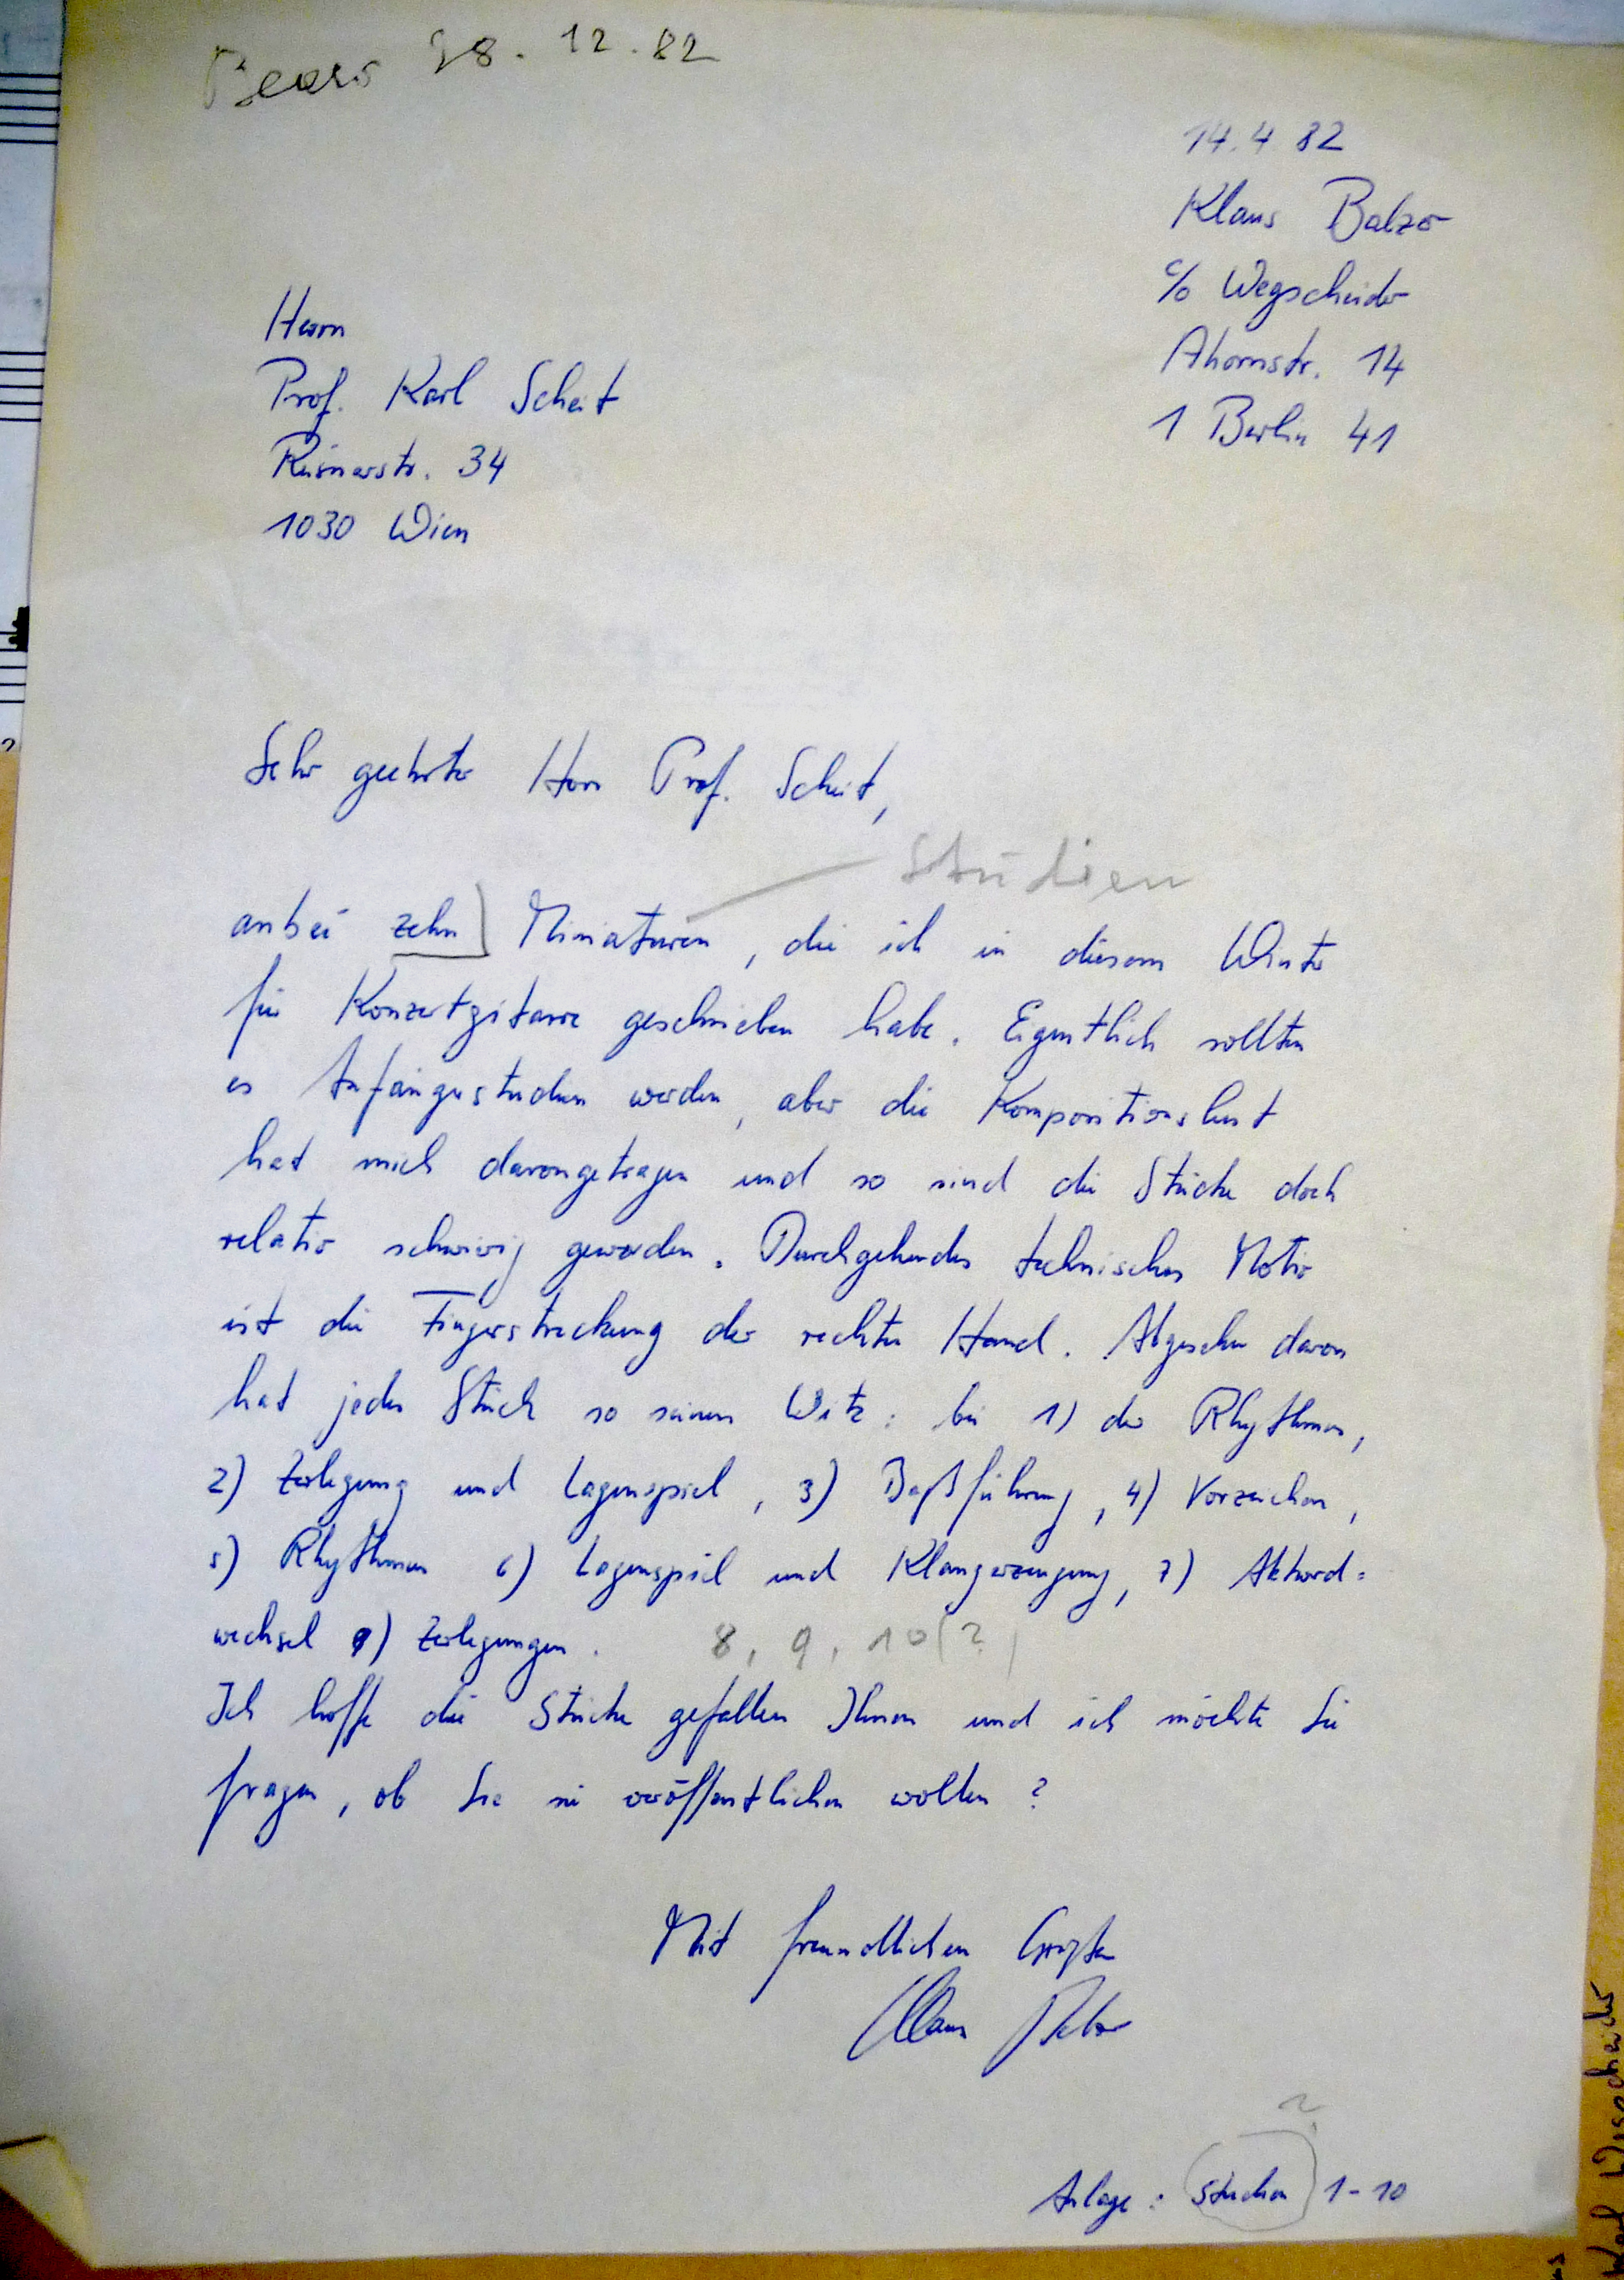 28.12.82
14.4.82
Klaus Balzer
c/o Wegscheider
Ahornstr. 14
1 Berlin 41
Herrn
Prof. Karl Scheit
Reisnerstr. 34
1030 Wien
Sehr geehrter Herr Prof. Scheit,
Studien
anbei zehn Miniaturen, die ich in diesem Winter
für Konzertgitarre geschrieben habe. Eigentlich sollten
es Anfängerstudien werden, aber die Kompositionslust
hat mich davongetragen und so sind die Stücke doch
relativ schwierig geworden. Durchgehendes technisches Motiv
ist die Fingerstreckung der rechten Hand. Abgesehen davon
hat jedes Stück so seinen Witz: bei 1) der Rhythmus,
2) Zerlegung und Lagenspiel, 3) Baßführung, 4) Vorzeichen,
5) Rhythmus 6) Lagenspiel und Klangerzeugung, 7) Akkord=
wechsel 9) Zerlegungen.
8, 9, 10 (?)
Ich hoffe die Stücke gefallen Ihnen und ich möchte Sie
fragen, ob Sie sie veröffentlichen wollen?
Mit freundlichen Grüßen
Klaus Balzer
?
Anlage: Studien 1-10